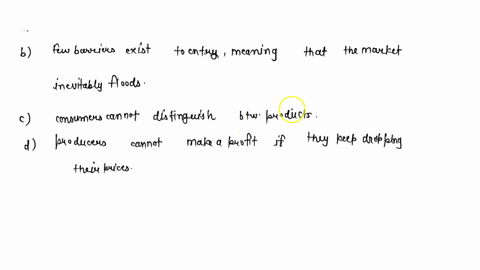 b) few barriers exist to entry, meaning that the market
inevitably floods.
c) consumers cannot distinguish btw. products.
d) producers cannot make a profit if they keep dropping
their prices.